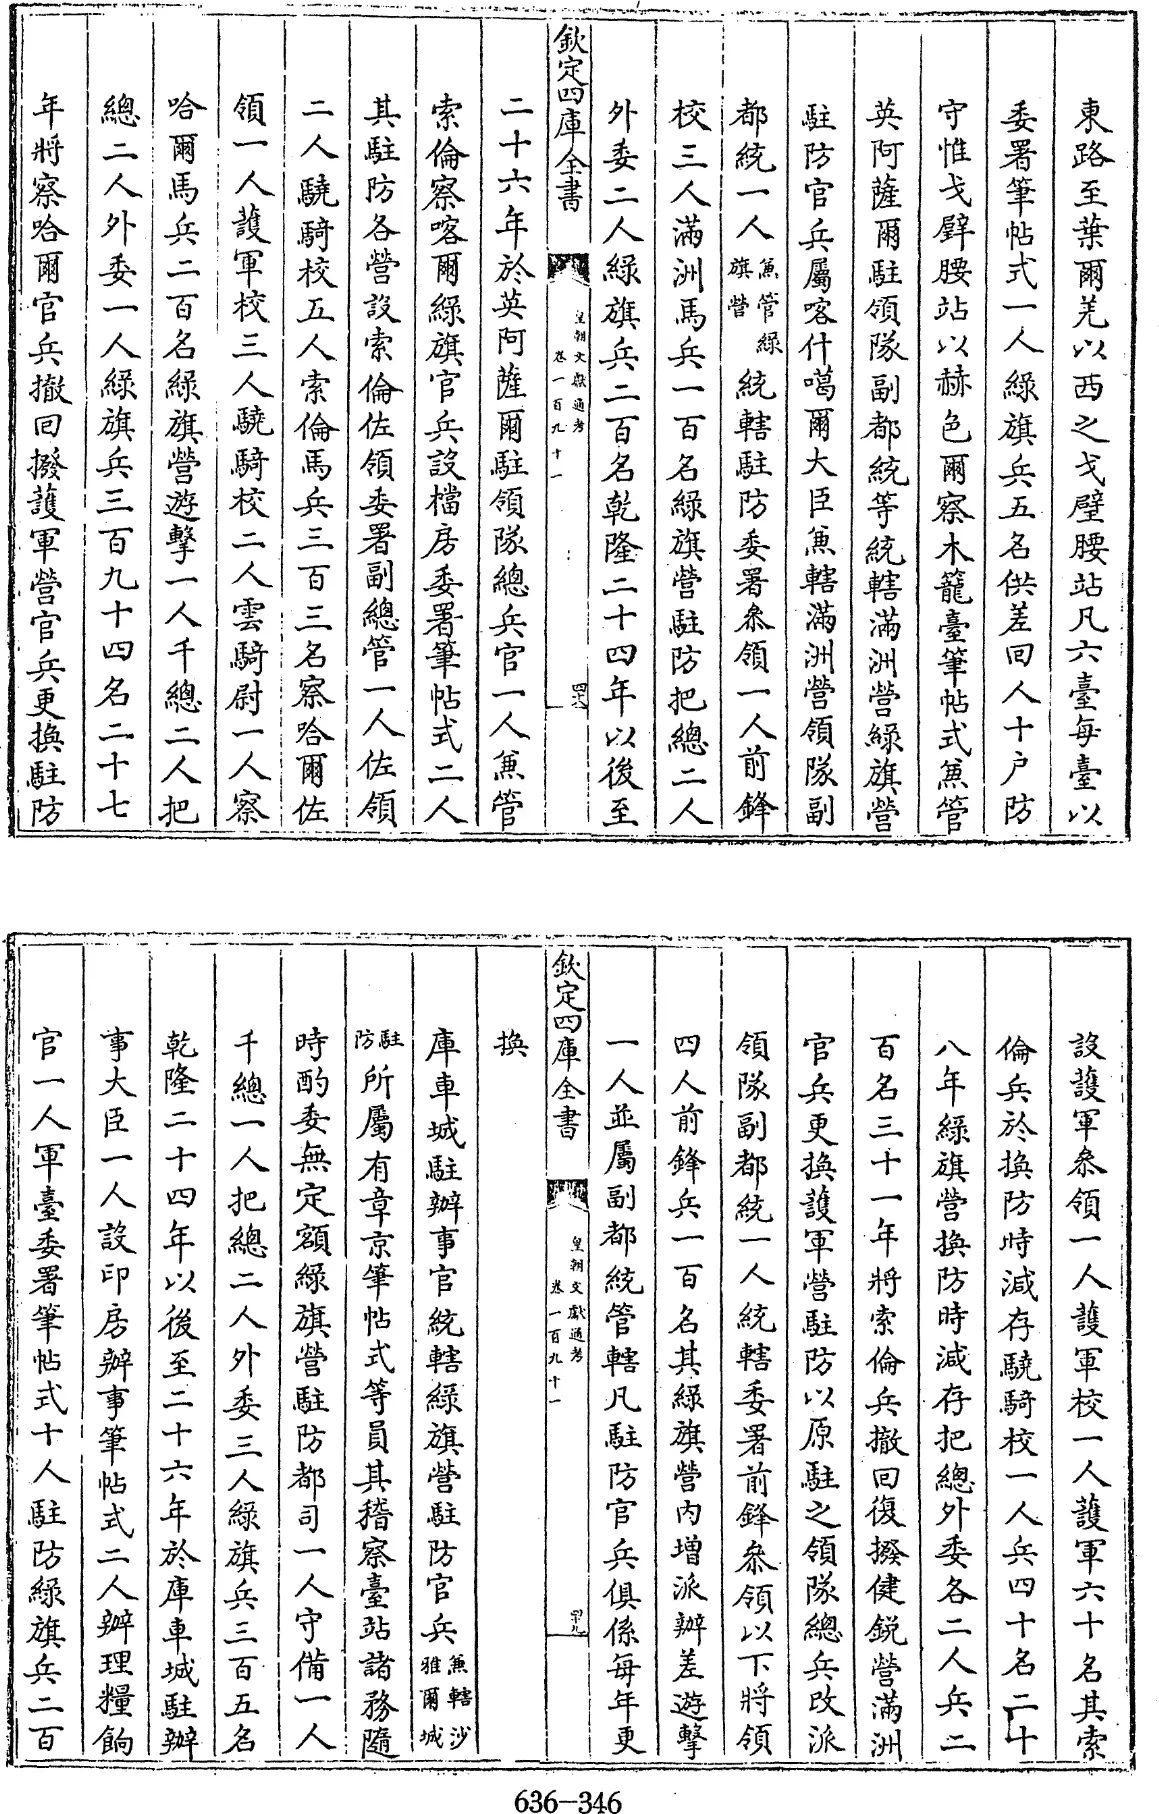 東路至葉爾羌以西之戈壁腰站凡六臺每臺以
委署筆帖式一人綠旗兵五名供差回人十户防
守惟戈壁腰站以赫色爾察木籠臺筆帖式兼管
英阿薩爾駐領隊副都統等統轄滿洲營綠旗營
駐防官兵屬喀什噶爾大臣兼轄滿洲營領隊副
都統一人兼管綠旗營統轄駐防委署叅領一人前鋒
校三人滿洲馬兵一百名綠旗營駐防把總二人
外委二人綠旗兵二百名乾隆二十四年以後至
欽定四庫全書
皇朝文獻通考
卷一百九十一
四十八
二十六年於英阿薩爾駐領隊總兵官一人兼管
索倫察喀爾綠旗官兵設檔房委署筆帖式二人
其駐防各營設索倫佐領委署副總管一人佐領
二人驍騎校五人索倫馬兵三百三名察哈爾佐
領一人護軍校三人驍騎校二人雲騎尉一人察
哈爾馬兵二百名綠旗營遊擊一人千總二人把
總二人外委一人綠旗兵三百九十四名二十七
年將察哈爾官兵撤回撥護軍營官兵更換駐防
設護軍叅領一人護軍校一人護軍六十名其索
倫兵於換防時減存驍騎校一人兵四十名二十
八年綠旗營換防時減存把總外委各二人兵二
百名三十一年將索倫兵撤回復撥健銳營滿洲
官兵更換護軍營駐防以原駐之領隊總兵改派
領隊副都統一人統轄委署前鋒叅領以下將領
四人前鋒兵一百名其綠旗營內增派辦差遊擊
一人並屬副都統管轄凡駐防官兵俱係每年更
欽定四庫全書
皇朝文獻通考
卷一百九十一
四十九
換
庫車城駐辦事官統轄綠旗營駐防官兵兼轄沙雅爾城
駐防所屬有章京筆帖式等員其稽察臺站諸務隨
時酌委無定額綠旗營駐防都司一人守備一人
千總一人把總二人外委三人綠旗兵三百五名
乾隆二十四年以後至二十六年於庫車城駐辦
事大臣一人設印房辦事筆帖式二人辦理糧餉
官一人軍臺委署筆帖式十人駐防綠旗兵二百
636-346